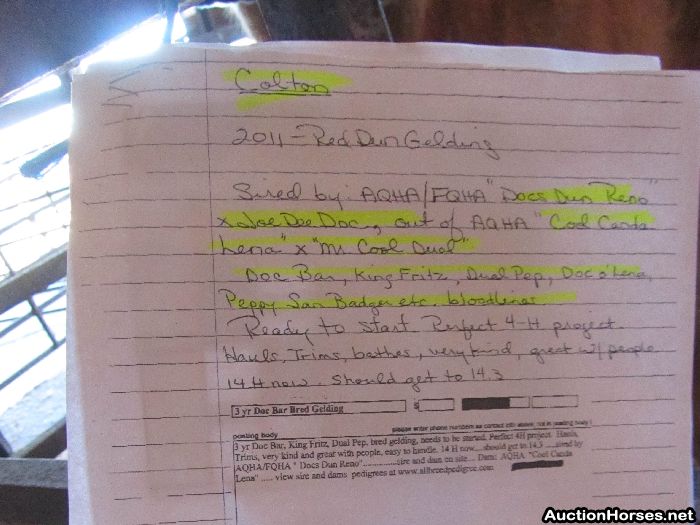 Colton
2011 - Red Dun Gelding
Sired by: AQHA/FQHA "Docs Dun Reno"
x Joe Dee Doc, out of AQHA "Cool Canda
Lena" x "Mr. Cool Dual"
Doc Bar, King Fritz, Dual Pep, Doc o'Lena,
Peppy San Badger etc. bloodlines
Ready to start Perfect 4-H project.
Hauls, Trims, bathes, very kind, great w/ people
14 H now. Should get to 14.3
3 yr Doc Bar Bred Gelding $
posting body please enter phone numbers as contact info above, not in posting body!
3 yr Doc Bar, King Fritz, Dual Pep, bred gelding, needs to be started. Perfect 4H project. Hauls,
Trims, very kind and great with people, easy to handle. 14 H now....should get to 14.3 .....sired by
AQHA/FQHA " Docs Dun Reno"..............sire and dam on site.... Dam: AQHA "Cool Canda
Lena" ..... view sire and dams pedigrees at www.allbreedpedigree.com
AuctionHorses.net